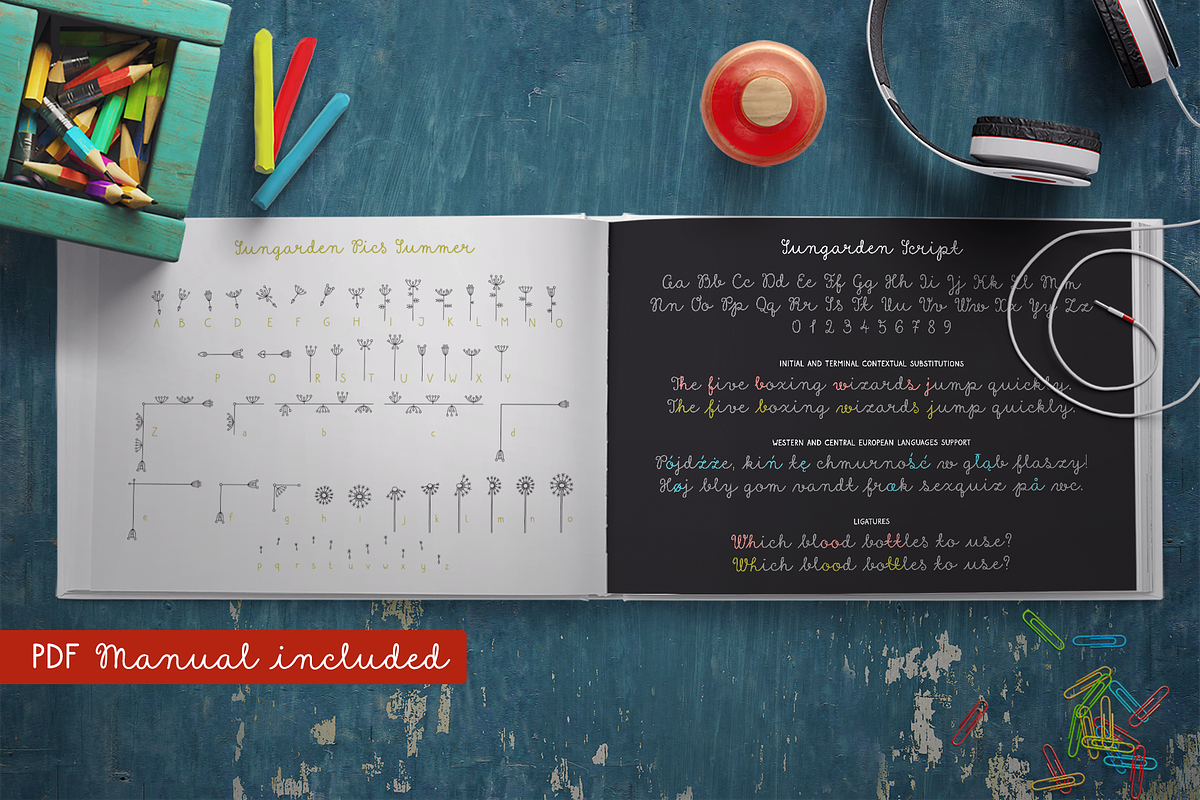 Sungarden Pics Summer
A B C D E F G H I J K L M N O
P Q R S T U V W X Y
Z a b c d
e f g h i j k l m n o
p q r s t u v w x y z
Sungarden Script
Aa Bb Cc Dd Ee Ff Gg Hh Ii Jj Kk Ll Mm
Nn Oo Pp Qq Rr Ss Tt Uu Vv Ww Xx Yy Zz
0 1 2 3 4 5 6 7 8 9
INITIAL AND TERMINAL CONTEXTUAL SUBSTITUTIONS
The five boxing wizards jump quickly.
The five boxing wizards jump quickly.
WESTERN AND CENTRAL EUROPEAN LANGUAGES SUPPORT
Pójdźże, kiń tę chmurność w głąb flaszy!
Høj bly gom vandt fræk sexquiz på wc.
LIGATURES
Which blood bottles to use?
Which blood bottles to use?
PDF Manual included